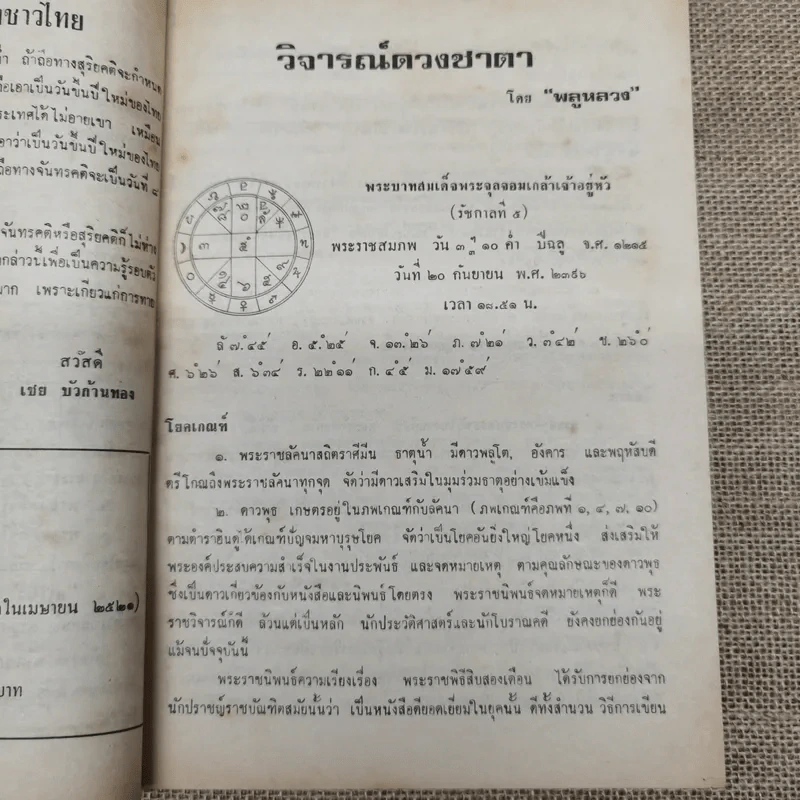 ชาวไทย
ถ้าถือทางสุริยคติจะกำหนด
ถือเอาเป็นวันขึ้นปีใหม่ของไทย
ประเทศได้ ไม่อายเขา เหมือน
เอาว่าเป็นวันขึ้นปีใหม่ของไทย
ถือทางจันทรคติจะเป็นวันที่ ๘
จันทรคติหรือสุริยคติก็ไม่ห่าง
กล่าวนี้เพื่อเป็นความรู้รอบตัว
มาก เพราะเกี่ยวแก่การทาย
สวัสดี
เชย บัวก้านทอง
ในเมษายน ๒๕๒๑)
บาท
วิจารณ์ดวงชาตา
โดย "พลูหลวง"
พระบาทสมเด็จพระจุลจอมเกล้าเจ้าอยู่หัว
(รัชกาลที่ ๕)
พระราชสมภพ วัน ๓ ๑๐ ค่ำ ปีฉลู จ.ศ. ๑๒๑๕
วันที่ ๒๐ กันยายน พ.ศ. ๒๓๙๖
เวลา ๑๘.๕๑ น.
ลั ๗ํ ๔๕′ อ. ๕ํ ๒๕′ จ. ๑๓ํ ๒๖′ ภ. ๗ํ ๒๑′ ว. ๓ํ ๔๒′ ช. ๒๖ํ ๐′
ศ. ๖ํ ๒๖′ ส. ๖ํ ๓๔′ ร. ๒๒ํ ๑๑′ ก. ๔ํ ๕′ ม. ๑๗ํ ๕๙′
โยคเกณฑ์
๑. พระราชลัคนาสถิตราศีมีน ธาตุน้ำ มีดาวพลูโต, อังคาร และพฤหัสบดี
ตรีโกณถึงพระราชลัคนาทุกจุด จัดว่ามีดาวเสริมในมุมร่วมธาตุอย่างเข้มแข็ง
๒. ดาวพุธ เกษตรอยู่ในภพเกณฑ์กับลัคนา (ภพเกณฑ์คือภพที่ ๑, ๔, ๗, ๑๐)
ตามตำราฮินดูได้เกณฑ์ปัญจมหาบุรุษโยค จัดว่าเป็นโยคอันยิ่งใหญ่โยคหนึ่ง ส่งเสริมให้
พระองค์ประสบความสำเร็จในงานประพันธ์ และจดหมายเหตุ ตามคุณลักษณะของดาวพุธ
ซึ่งเป็นดาวเกี่ยวข้องกับหนังสือและนิพนธ์โดยตรง พระราชนิพนธ์จดหมายเหตุก็ดี พระ
ราชวิจารณ์ก็ดี ล้วนแต่เป็นหลัก นักประวัติศาสตร์และนักโบราณคดี ยังคงยกย่องกันอยู่
แม้จนปัจจุบันนี้
พระราชนิพนธ์ความเรียงเรื่อง พระราชพิธีสิบสองเดือน ได้รับการยกย่องจาก
นักปราชญ์ราชบัณฑิตสมัยนั้นว่า เป็นหนังสือดียอดเยี่ยมในยุคนั้น ดีทั้งสำนวน วิธีการเขียน